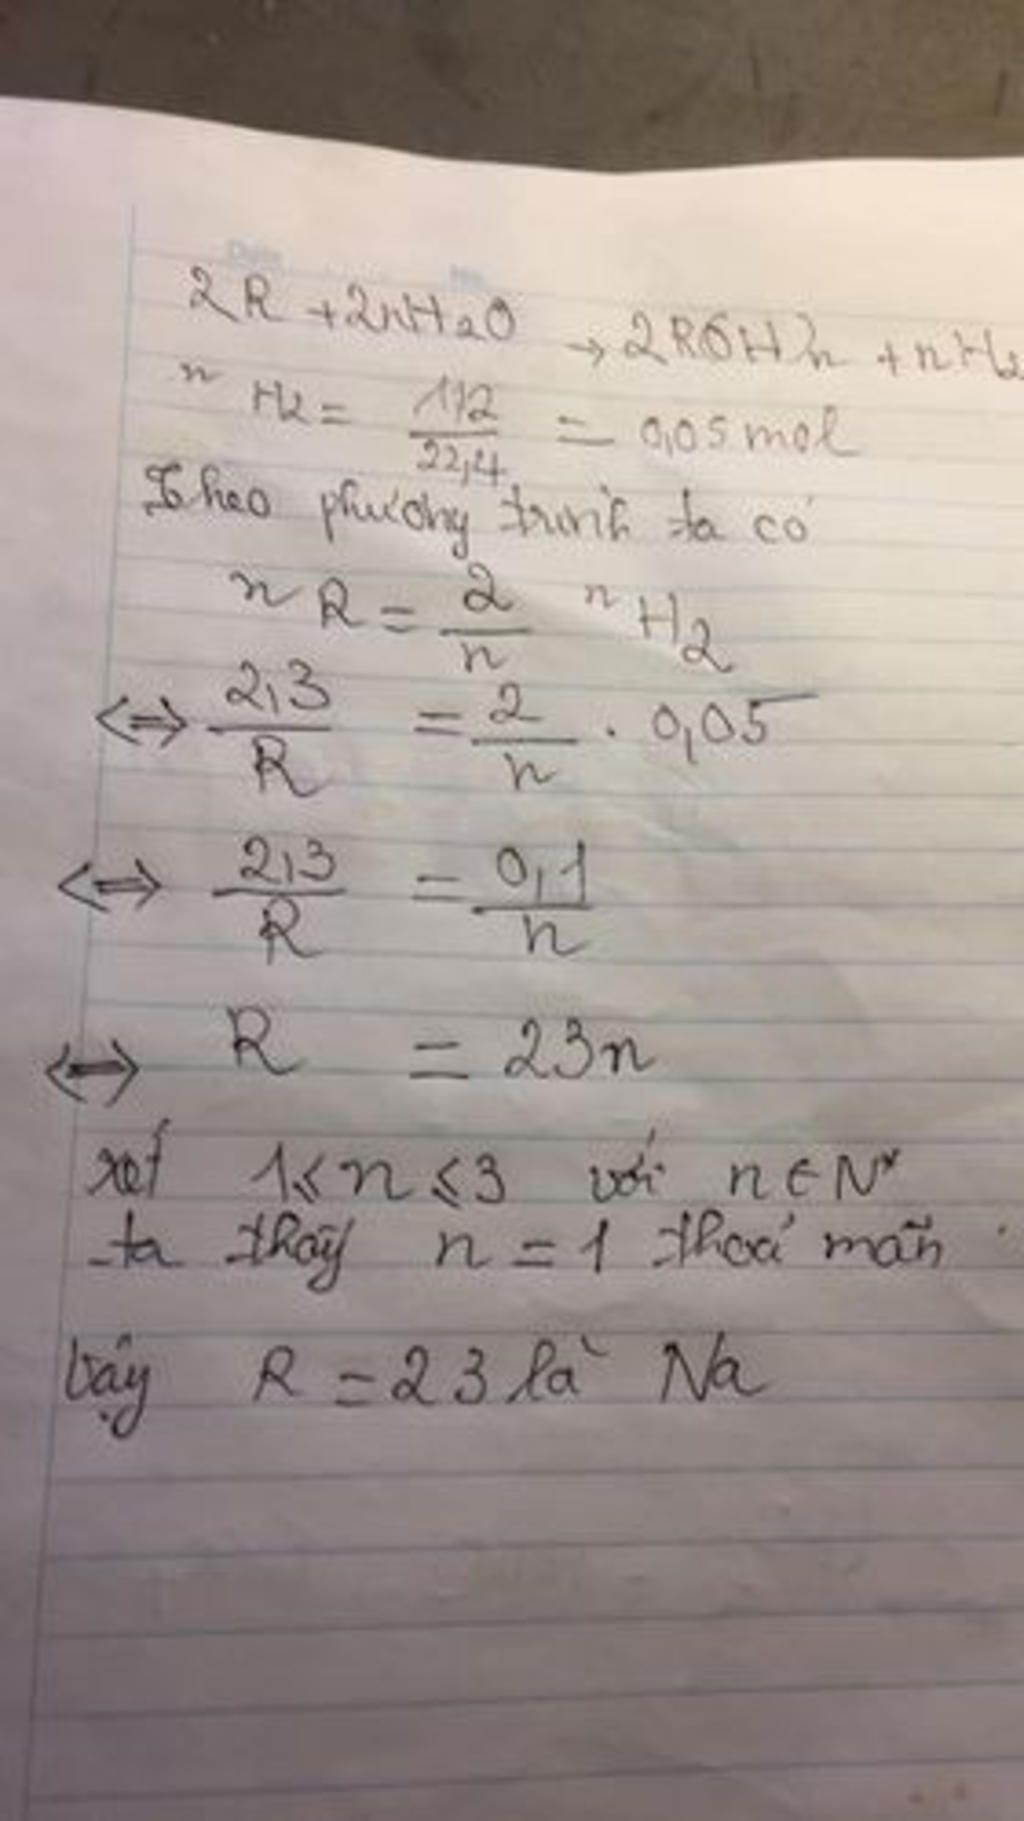 2R + 2nH2O → 2R(OH)n + nH2
nH2 = 1,12/22,4 = 0,05 mol
Theo phương trình ta có
nR = 2/n nH2
<=> 2,3/R = 2/n . 0,05
<=> 2,3/R = 0,1/n
<=> R = 23n
xét 1 ≤ n ≤ 3 với n ∈ N*
ta thấy n = 1 thoả mãn
Vậy R = 23 là Na